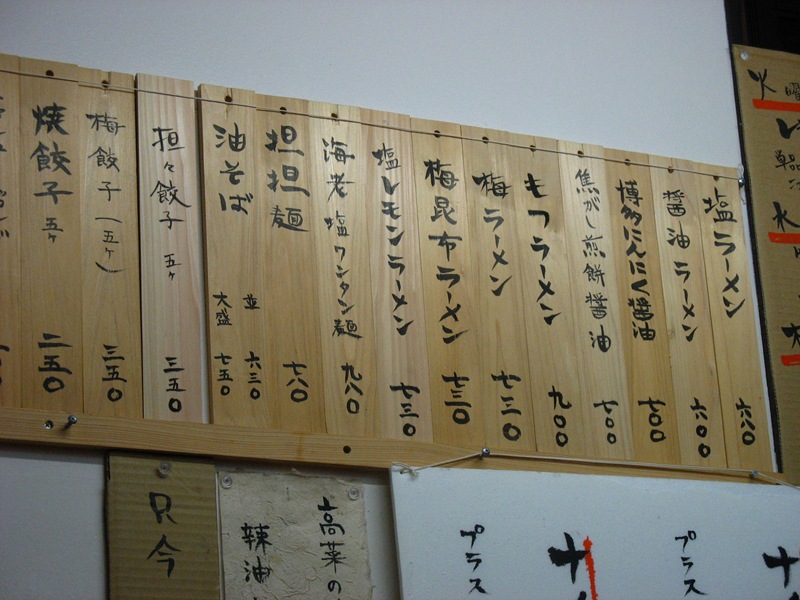 火曜
塩ラーメン 六八〇
醤油ラーメン 六〇〇
博多にんにく醤油 七〇〇
焦がし煎餅醤油 七〇〇
もつラーメン 九〇〇
梅ラーメン 七三〇
梅昆布ラーメン 七三〇
塩レモンラーメン 七三〇
海老塩ワンタン麺 九八〇
担担麺 七八〇
油そば
並 六三〇
大盛 七五〇
担々餃子 五ヶ 三五〇
梅餃子(五ヶ) 三五〇
焼餃子 五ヶ 二五〇
プラス
プラス
高菜の
辣油
只今